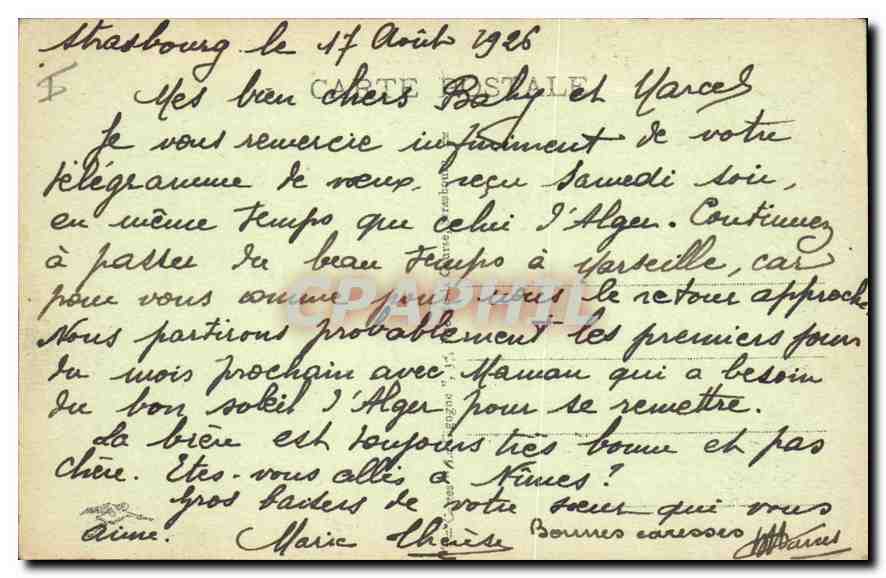 Strasbourg le 17 Août 1926
CARTE POSTALE
Mes bien chers Baby et Marcel
Je vous remercie infiniment de votre
télégramme de vœux, reçu samedi soir,
en même temps que celui d'Alger. Continuez
à passer du beau temps à Marseille, car
pour vous comme pour nous le retour approche
Nous partirons probablement les premiers jours
du mois prochain avec Maman qui a besoin
du bon soleil d'Alger pour se remettre.
La bière est toujours très bonne et pas
chère. Etes-vous allés à Nîmes?
Gros baisers de votre sœur qui vous
aime. Marie Thérèse Bonnes caresses
GRAPHTIL